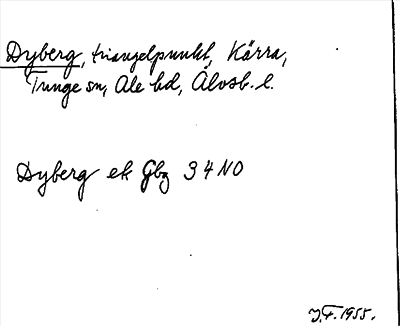 Dyberg, triangelpunkt, Kärra,
Tunge sn, Ale hd, Älvsb. l.
Dyberg ek Gbg 34 NO
J.F. 1955.